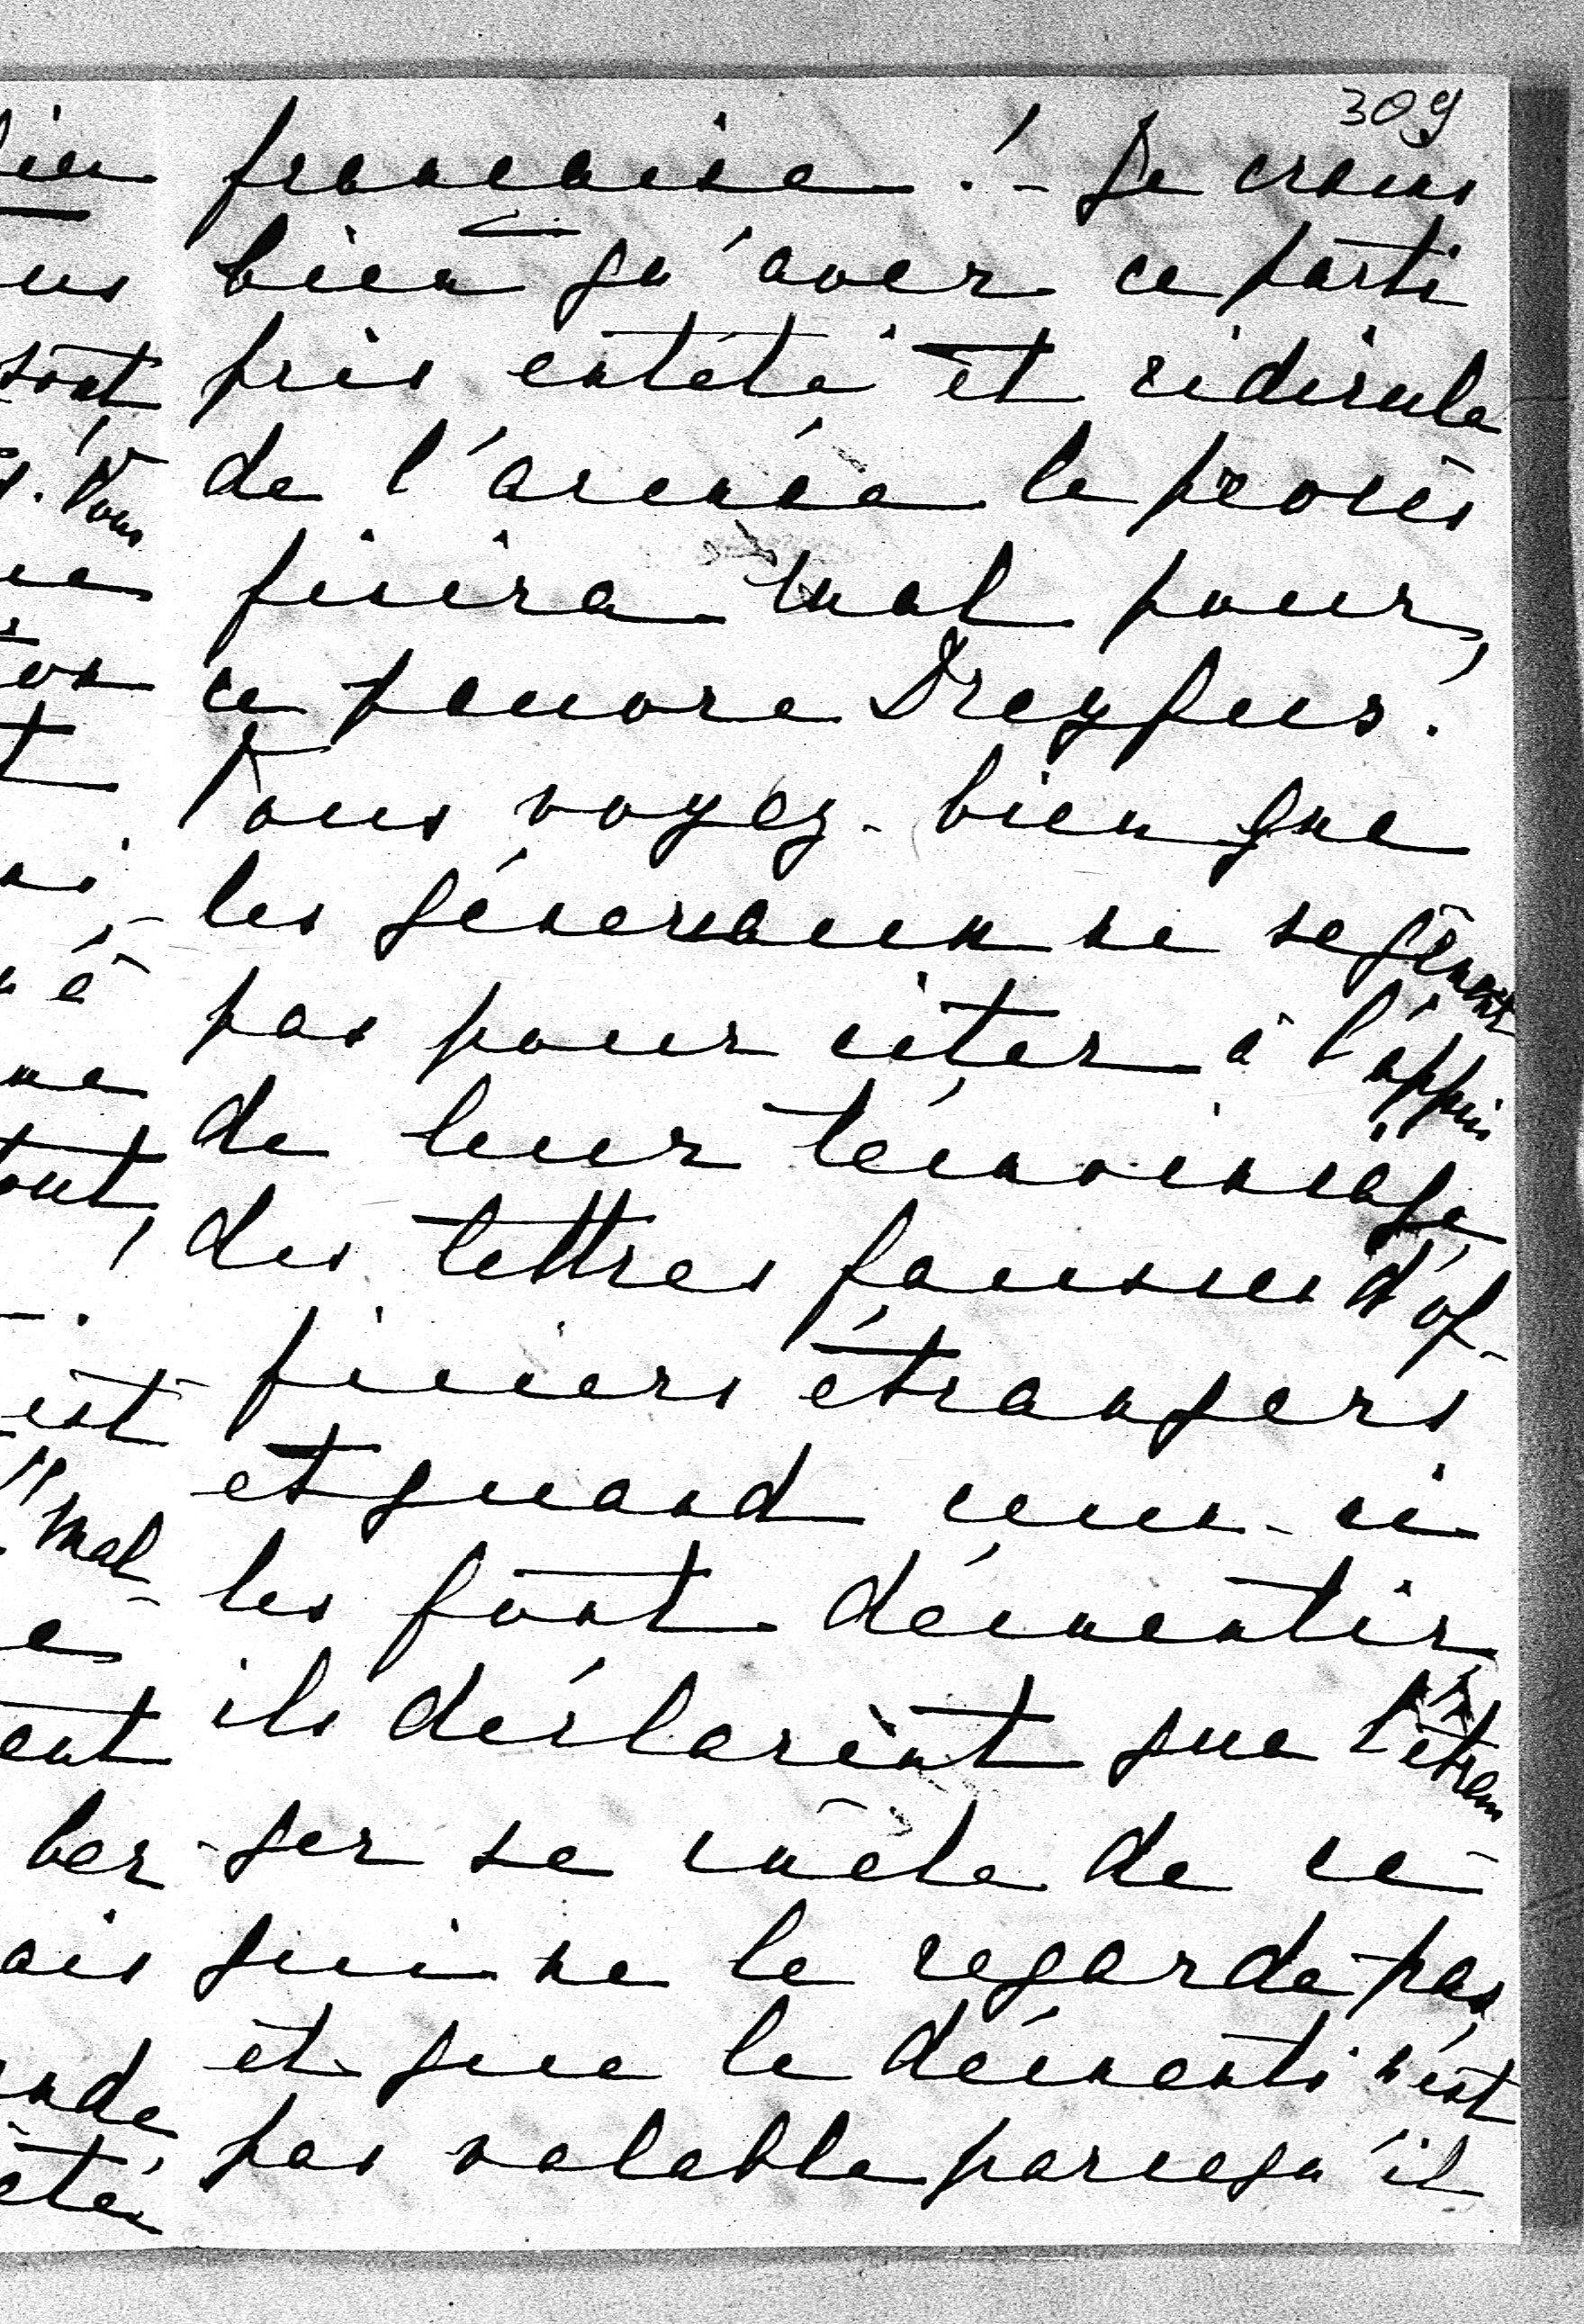 309
française ! - Je crains
bien qu'avec ce parti
pris entêté et ridicule
de l'armée le procès
finira mal pour
ce pauvre Dreyfus.
Vous voyez bien que
les généraux ne se gênent
pas pour citer à l'appui
de leur témoignage
des lettres fausses d'of-
ficiers étrangers
et quand ceux-ci
les font démentir
ils déclarent que l'étran
ger se mêle de ce
qui ne le regarde pas
et que le démenti n'est
pas valable parcequ'il